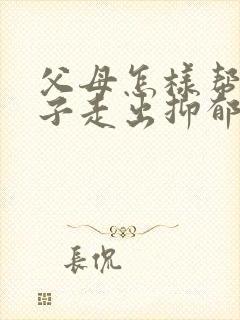 父母怎樣幫
子走出抑郁
長侃